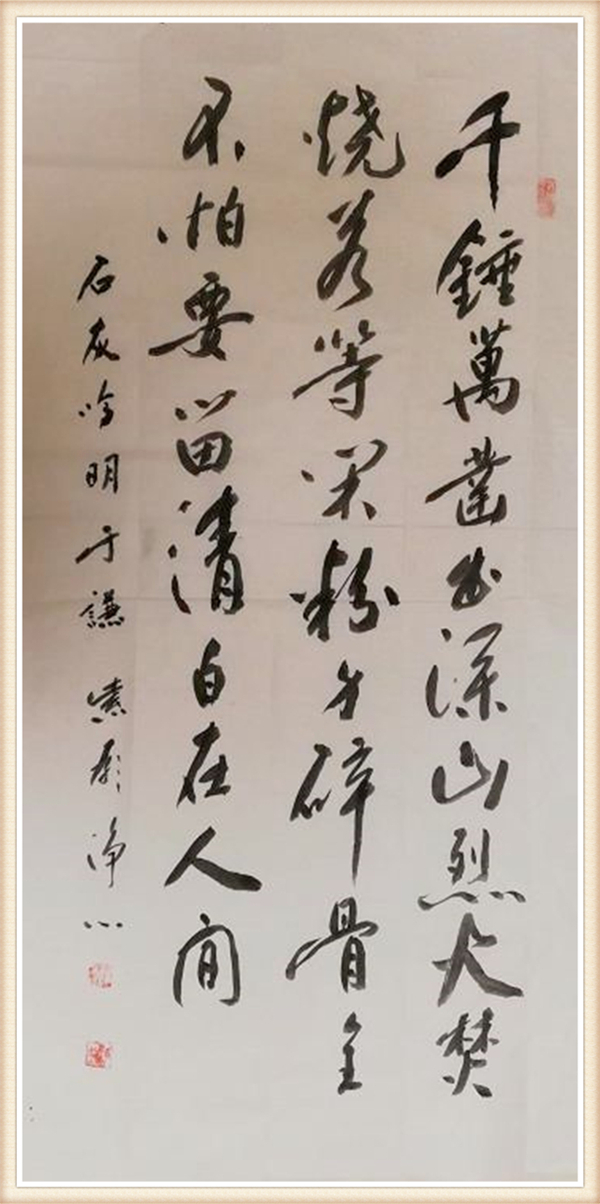 千錘萬鑿出深山烈火焚
燒若等閑粉身碎骨全
不怕要留清白在人間
石灰吟明于謙 淨心